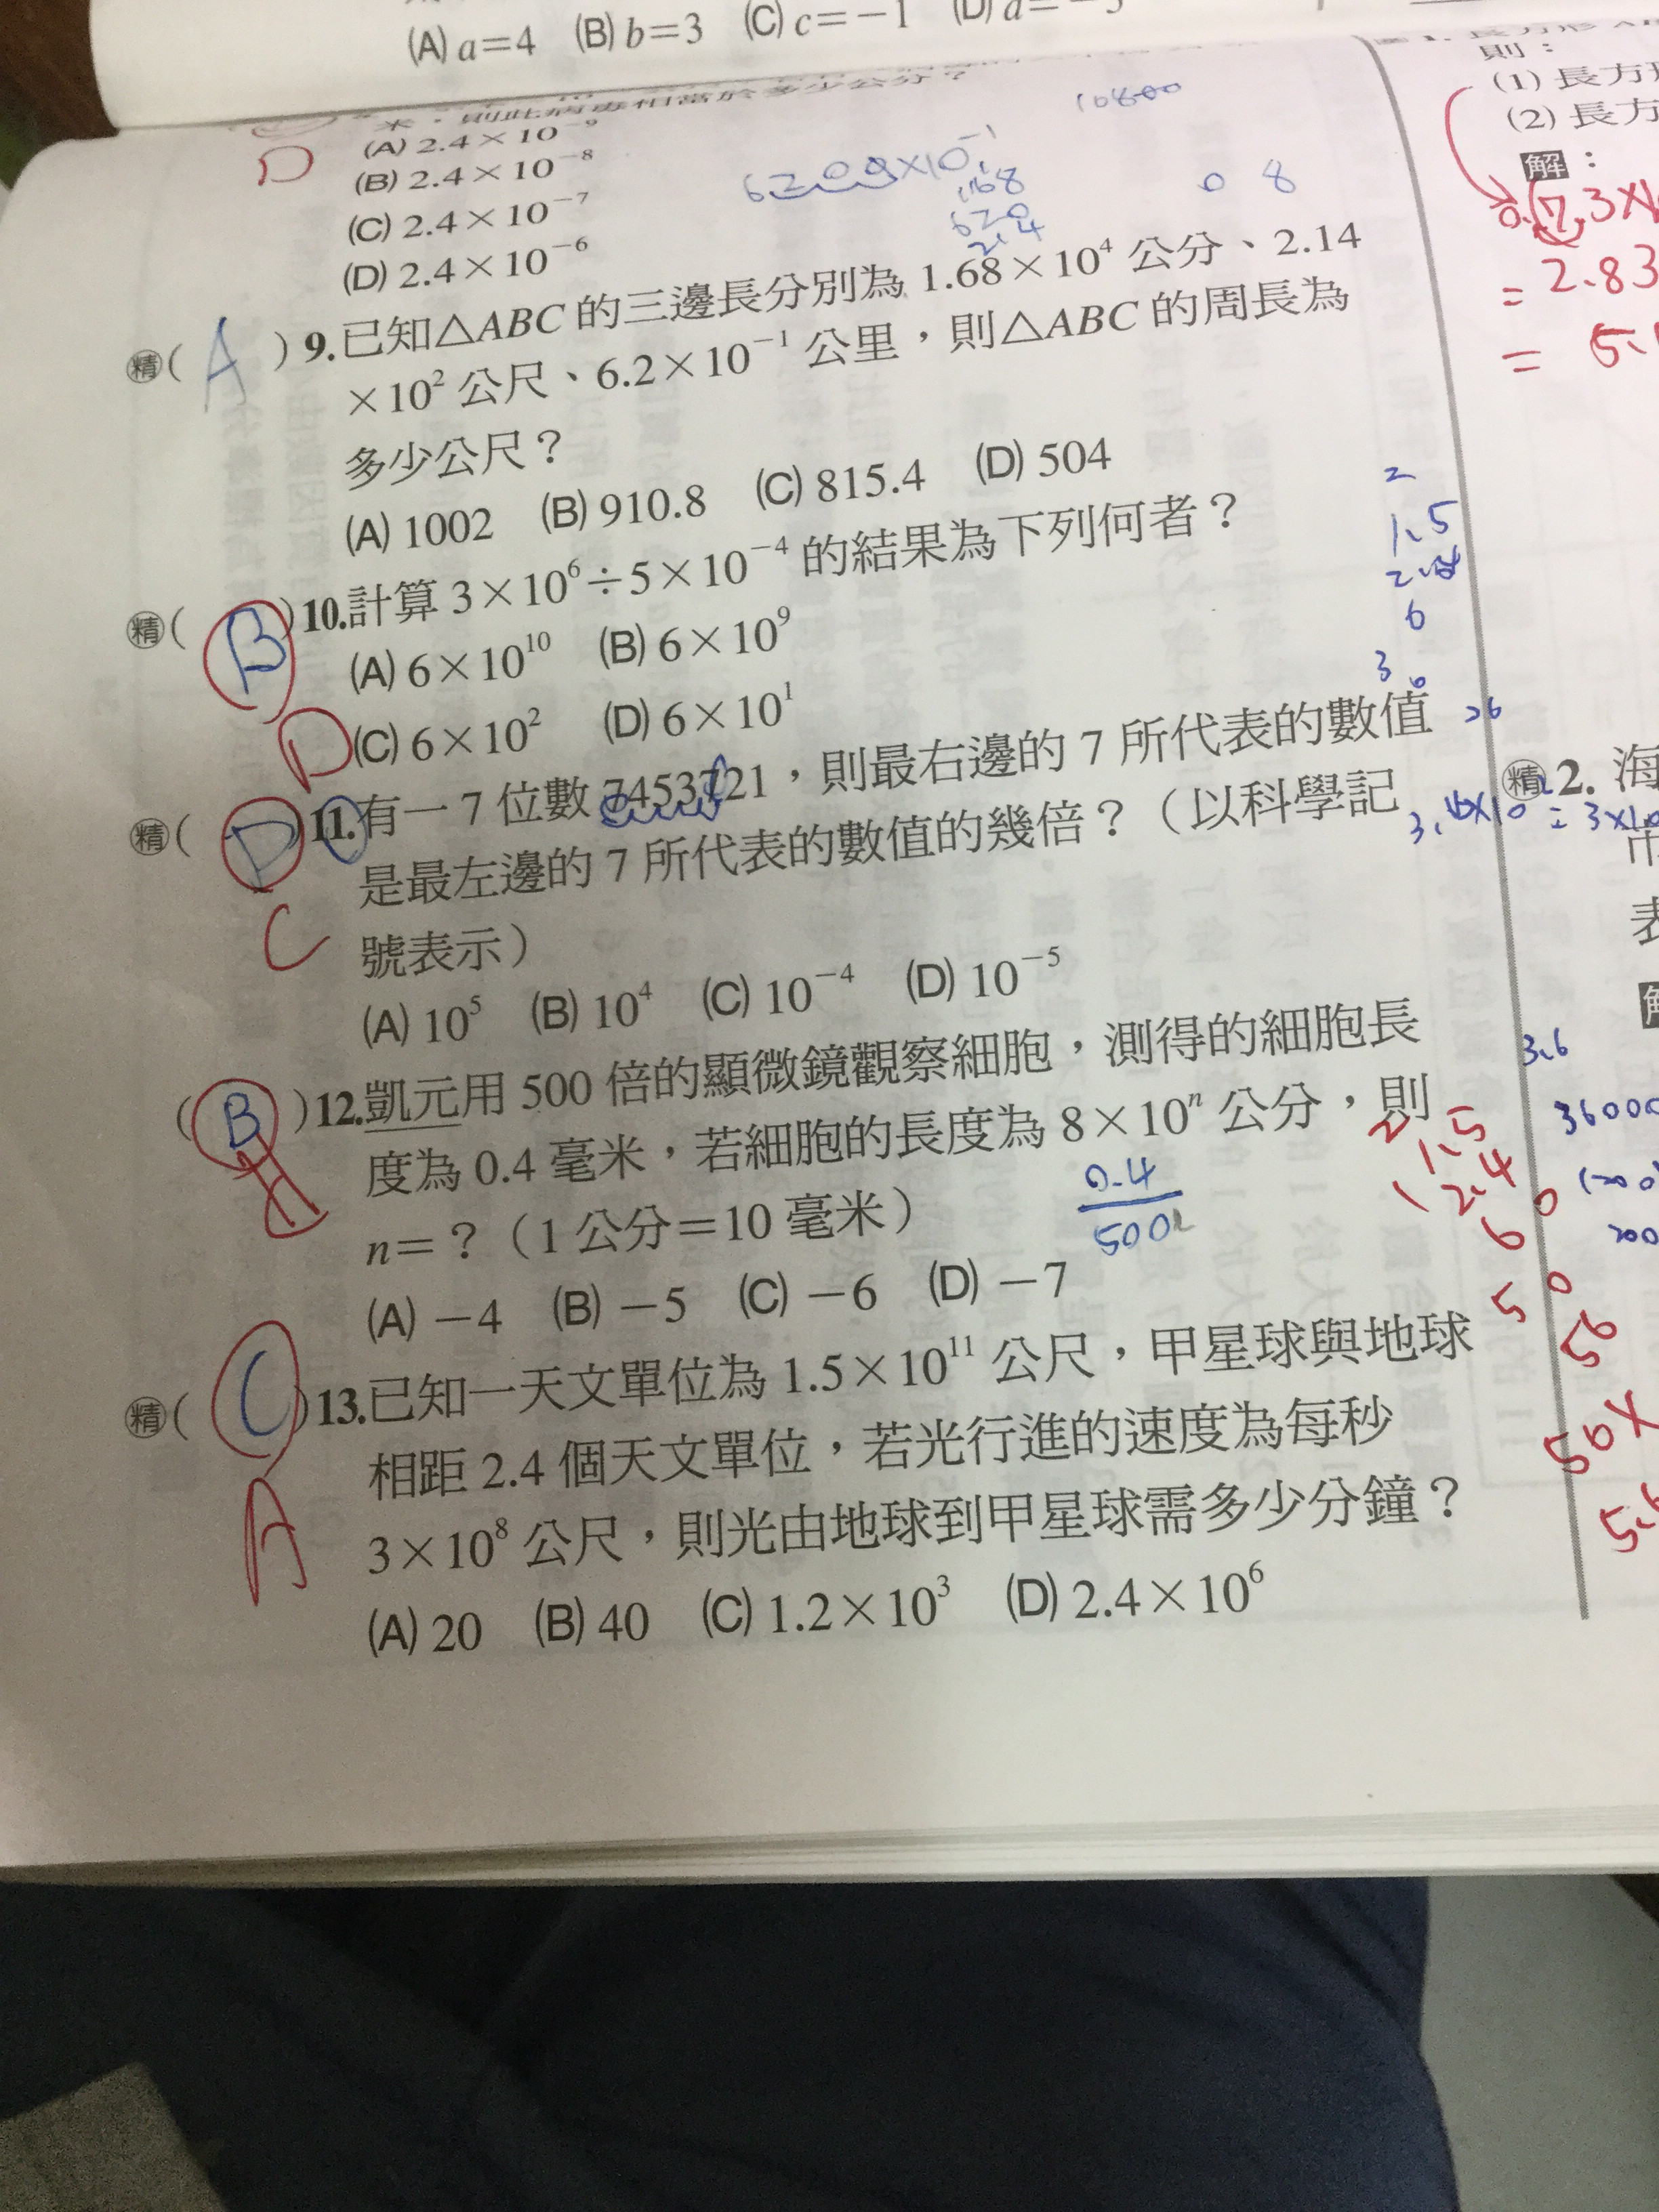 (A) a=4 (B) b=3 (C) c=−1 (D) d=−3
米，則此病毒相當於多少公分？
(A) 2.4×10⁻⁹
(B) 2.4×10⁻⁸
(C) 2.4×10⁻⁷
(D) 2.4×10⁻⁶
D
10800
0 8
168
620
2.4
精( A ) 9.已知△ABC的三邊長分別為 1.68×10⁴ 公分、2.14
×10² 公尺、6.2×10⁻¹ 公里，則△ABC的周長為
多少公尺？
(A) 1002 (B) 910.8 (C) 815.4 (D) 504
精( B )10.計算 3×10⁶÷5×10⁻⁴ 的結果為下列何者？
(A) 6×10¹⁰ (B) 6×10⁹
D (C) 6×10² (D) 6×10¹
精( D )11.有一 7 位數 7453721，則最右邊的 7 所代表的數值
是最左邊的 7 所代表的數值的幾倍？（以科學記
C 號表示）
(A) 10⁵ (B) 10⁴ (C) 10⁻⁴ (D) 10⁻⁵
( B )12.凱元用 500 倍的顯微鏡觀察細胞，測得的細胞長
度為 0.4 毫米，若細胞的長度為 8×10ⁿ 公分，則
n=？（1 公分=10 毫米）
0.4
500
(A) −4 (B) −5 (C) −6 (D) −7
精( C )13.已知一天文單位為 1.5×10¹¹ 公尺，甲星球與地球
相距 2.4 個天文單位，若光行進的速度為每秒
A 3×10⁸ 公尺，則光由地球到甲星球需多少分鐘？
(A) 20 (B) 40 (C) 1.2×10³ (D) 2.4×10⁶
2
1.5
6
3 6
3.6
36000
1.5
2.4
6 0
5 0
則：
(1) 長方
(2) 長方
解：
= 2.83
= 5.
精2. 海